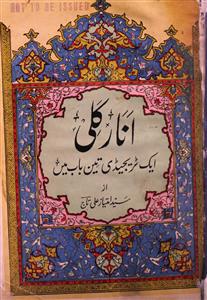 NOT TO BE ISSUED
انارکلی
ایک ٹریجیڈی تین باب میں
از
سید امتیاز علی تاج